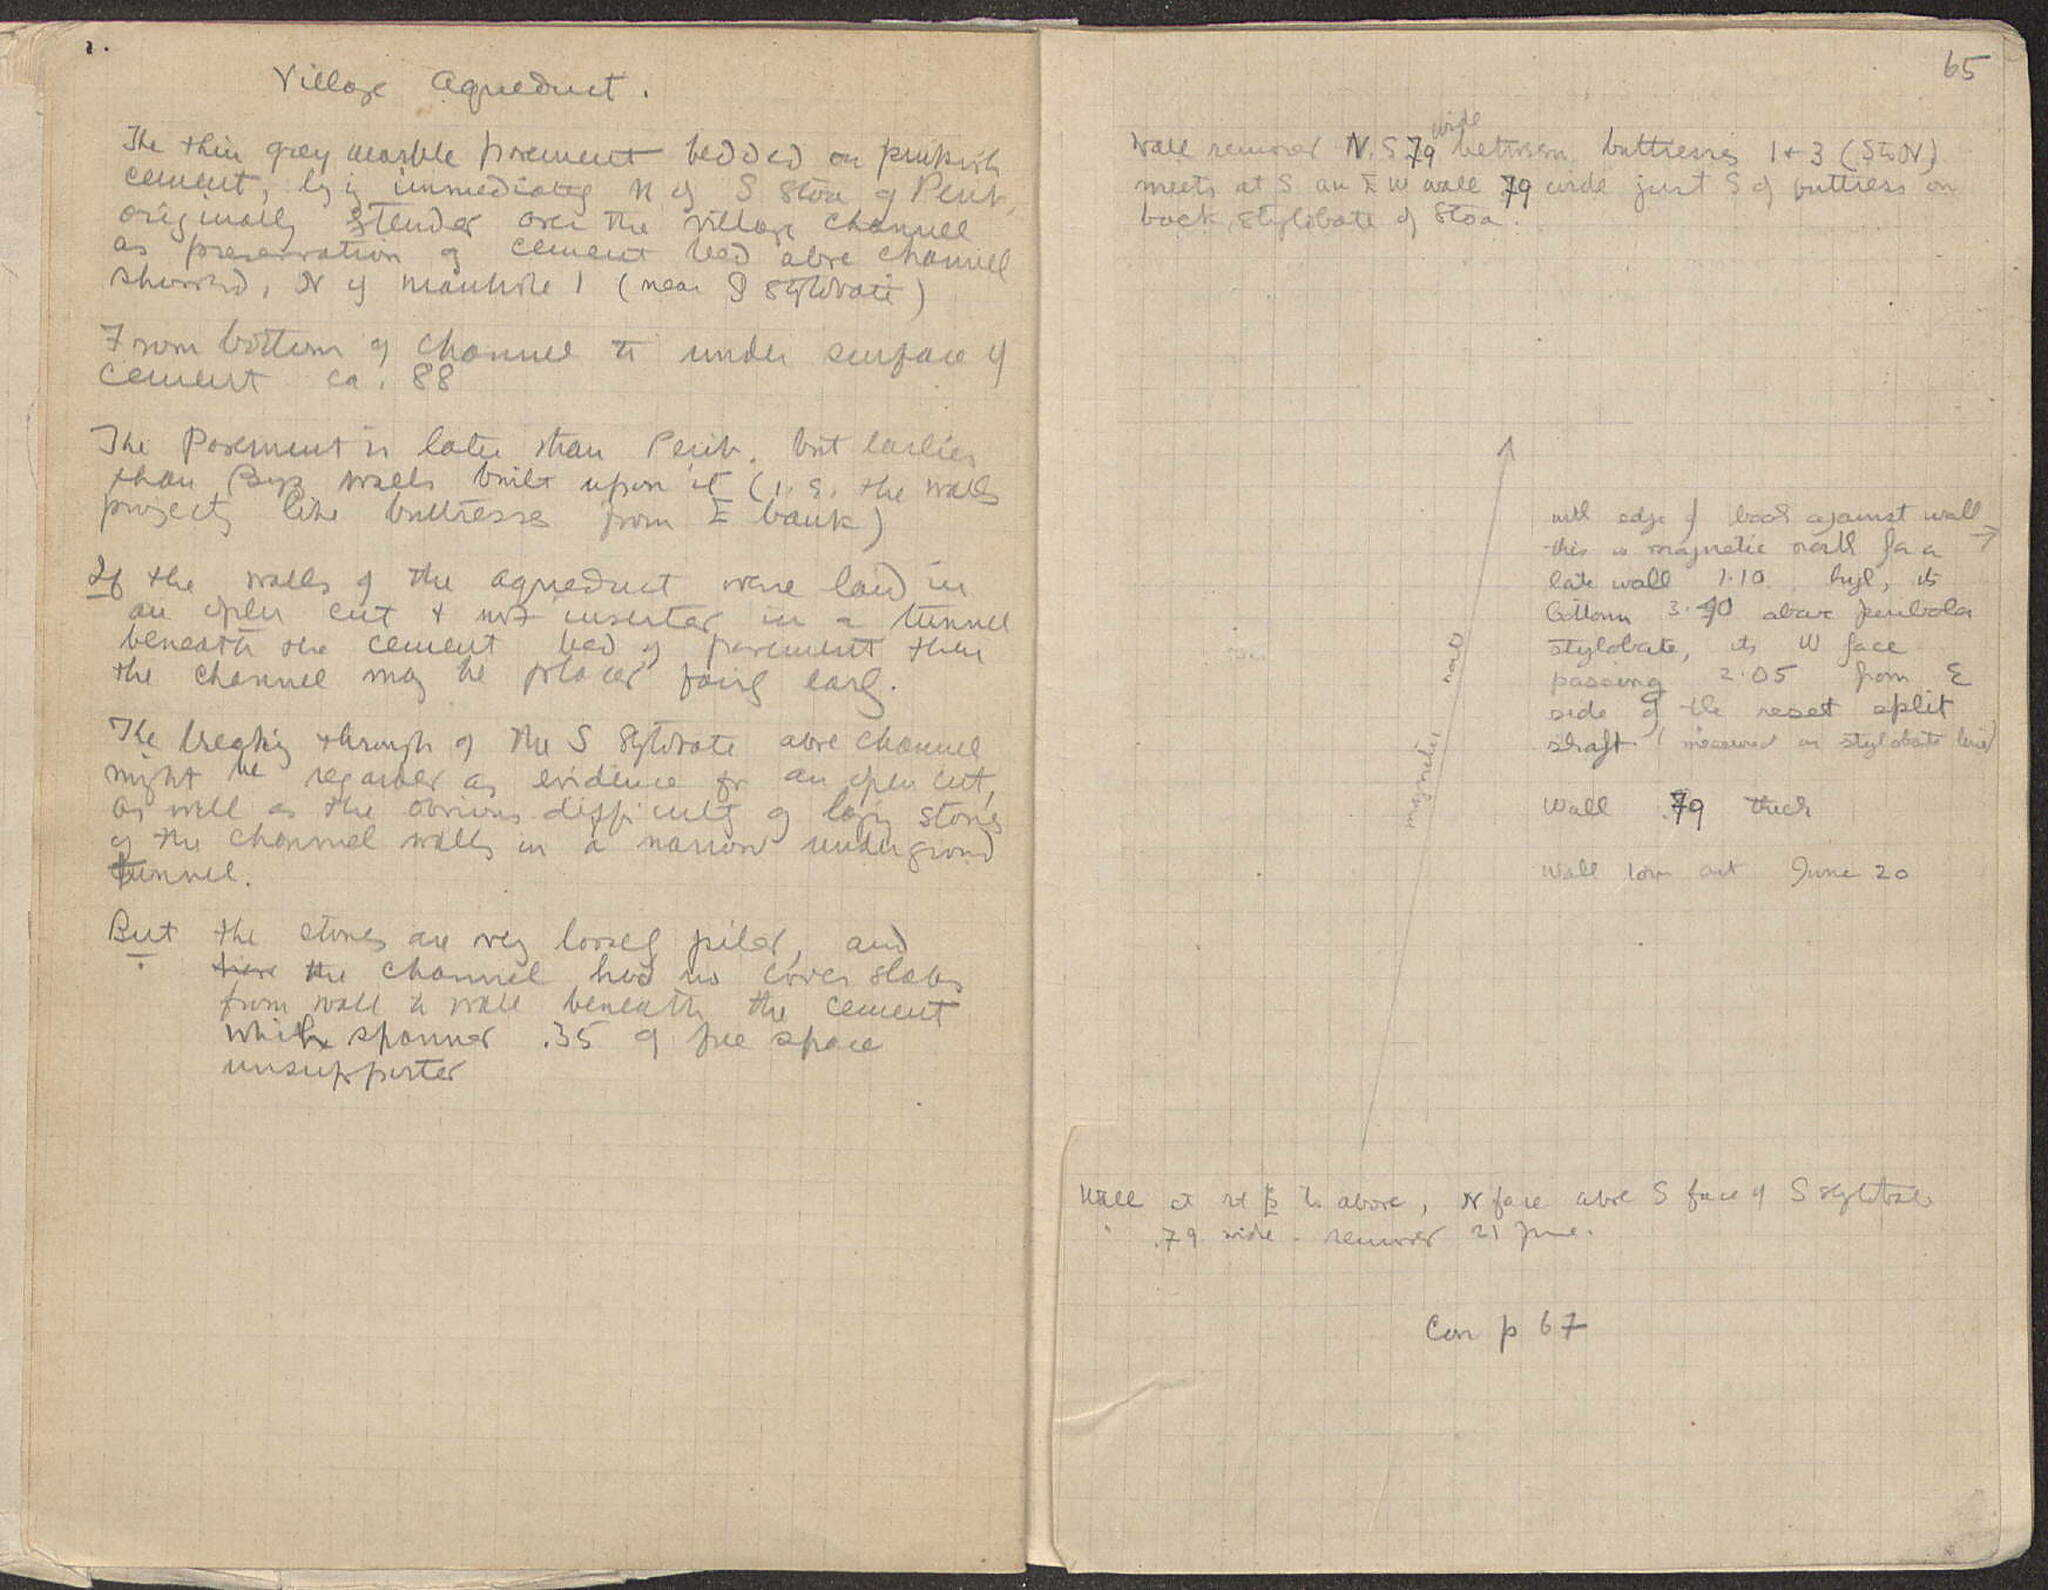 Village Aqueduct.
The thin grey marble pavement bedded on pinkish
cement, lying immediately N of S Stoa of Perib.
originally extended over the village channel
as preservation of cement bed above channel
showed, N of manhole 1 (near S stylobate)
From bottom of channel to under surface of
cement ca. .88
The Pavement is later than Perib. but earlier
than Byz walls built upon it (i.e. the walls
projecting like buttresses from E bank)
If the walls of the aqueduct were laid in
an open cut & not inserted in a tunnel
beneath the cement bed of pavement then
the channel may be placed fairly early.
The breaking through of the S Stylobate above channel
might be regarded as evidence for an open cut,
as well as the obvious difficulty of laying stones
of the channel walls in a narrow underground
tunnel.
But the stones are very loosely piled, and
the channel had no cover slabs
from wall to wall beneath the cement
which spanned .35 of free space
unsupported
65
Wall removed N.S .79 wide between buttresses 1 + 3 (S to N)
meets at S an E W wall .79 wide just S of buttress on
back stylobate of Stoa.
with edge of book against wall →
this is magnetic north for a
late wall 1.10 high, its
bottom 3.40 above peribolos
stylobate, its W face
passing 2.05 from E
side of the reset split
shaft (measured on stylobate line)
magnetic north
Wall .79 thick
Wall torn out June 20
Wall at rt to above, N face above S face of S stylobate
" .79 wide - removed 21 June.
Con p 67